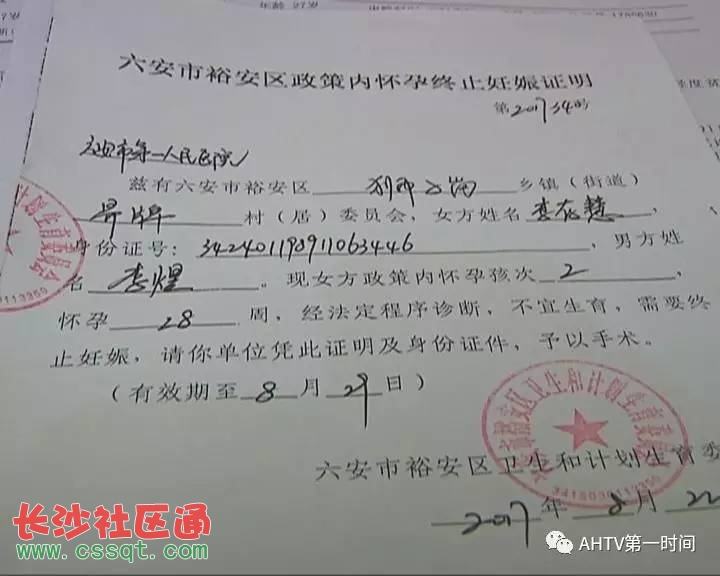 年龄 27岁
六安市裕安区政策内怀孕终止妊娠证明
第201734的
市第一人民医院
兹有六安市裕安区 乡镇（街道）
村（居）委员会，女方姓名 李
身份证号：342401199911063446，男方姓
名 李煜。现女方政策内怀孕孩次 2，
怀孕 28 周，经法定程序诊断，不宜生育，需要终
止妊娠，请你单位凭此证明及身份证件，予以手术。
（有效期至 8 月 29 日）
六安市裕安区卫生和计划生育委
2017 年 8 月 22
市裕安区卫生和计划生育委员会
长沙社区通
www.cssqt.com
AHTV第一时间